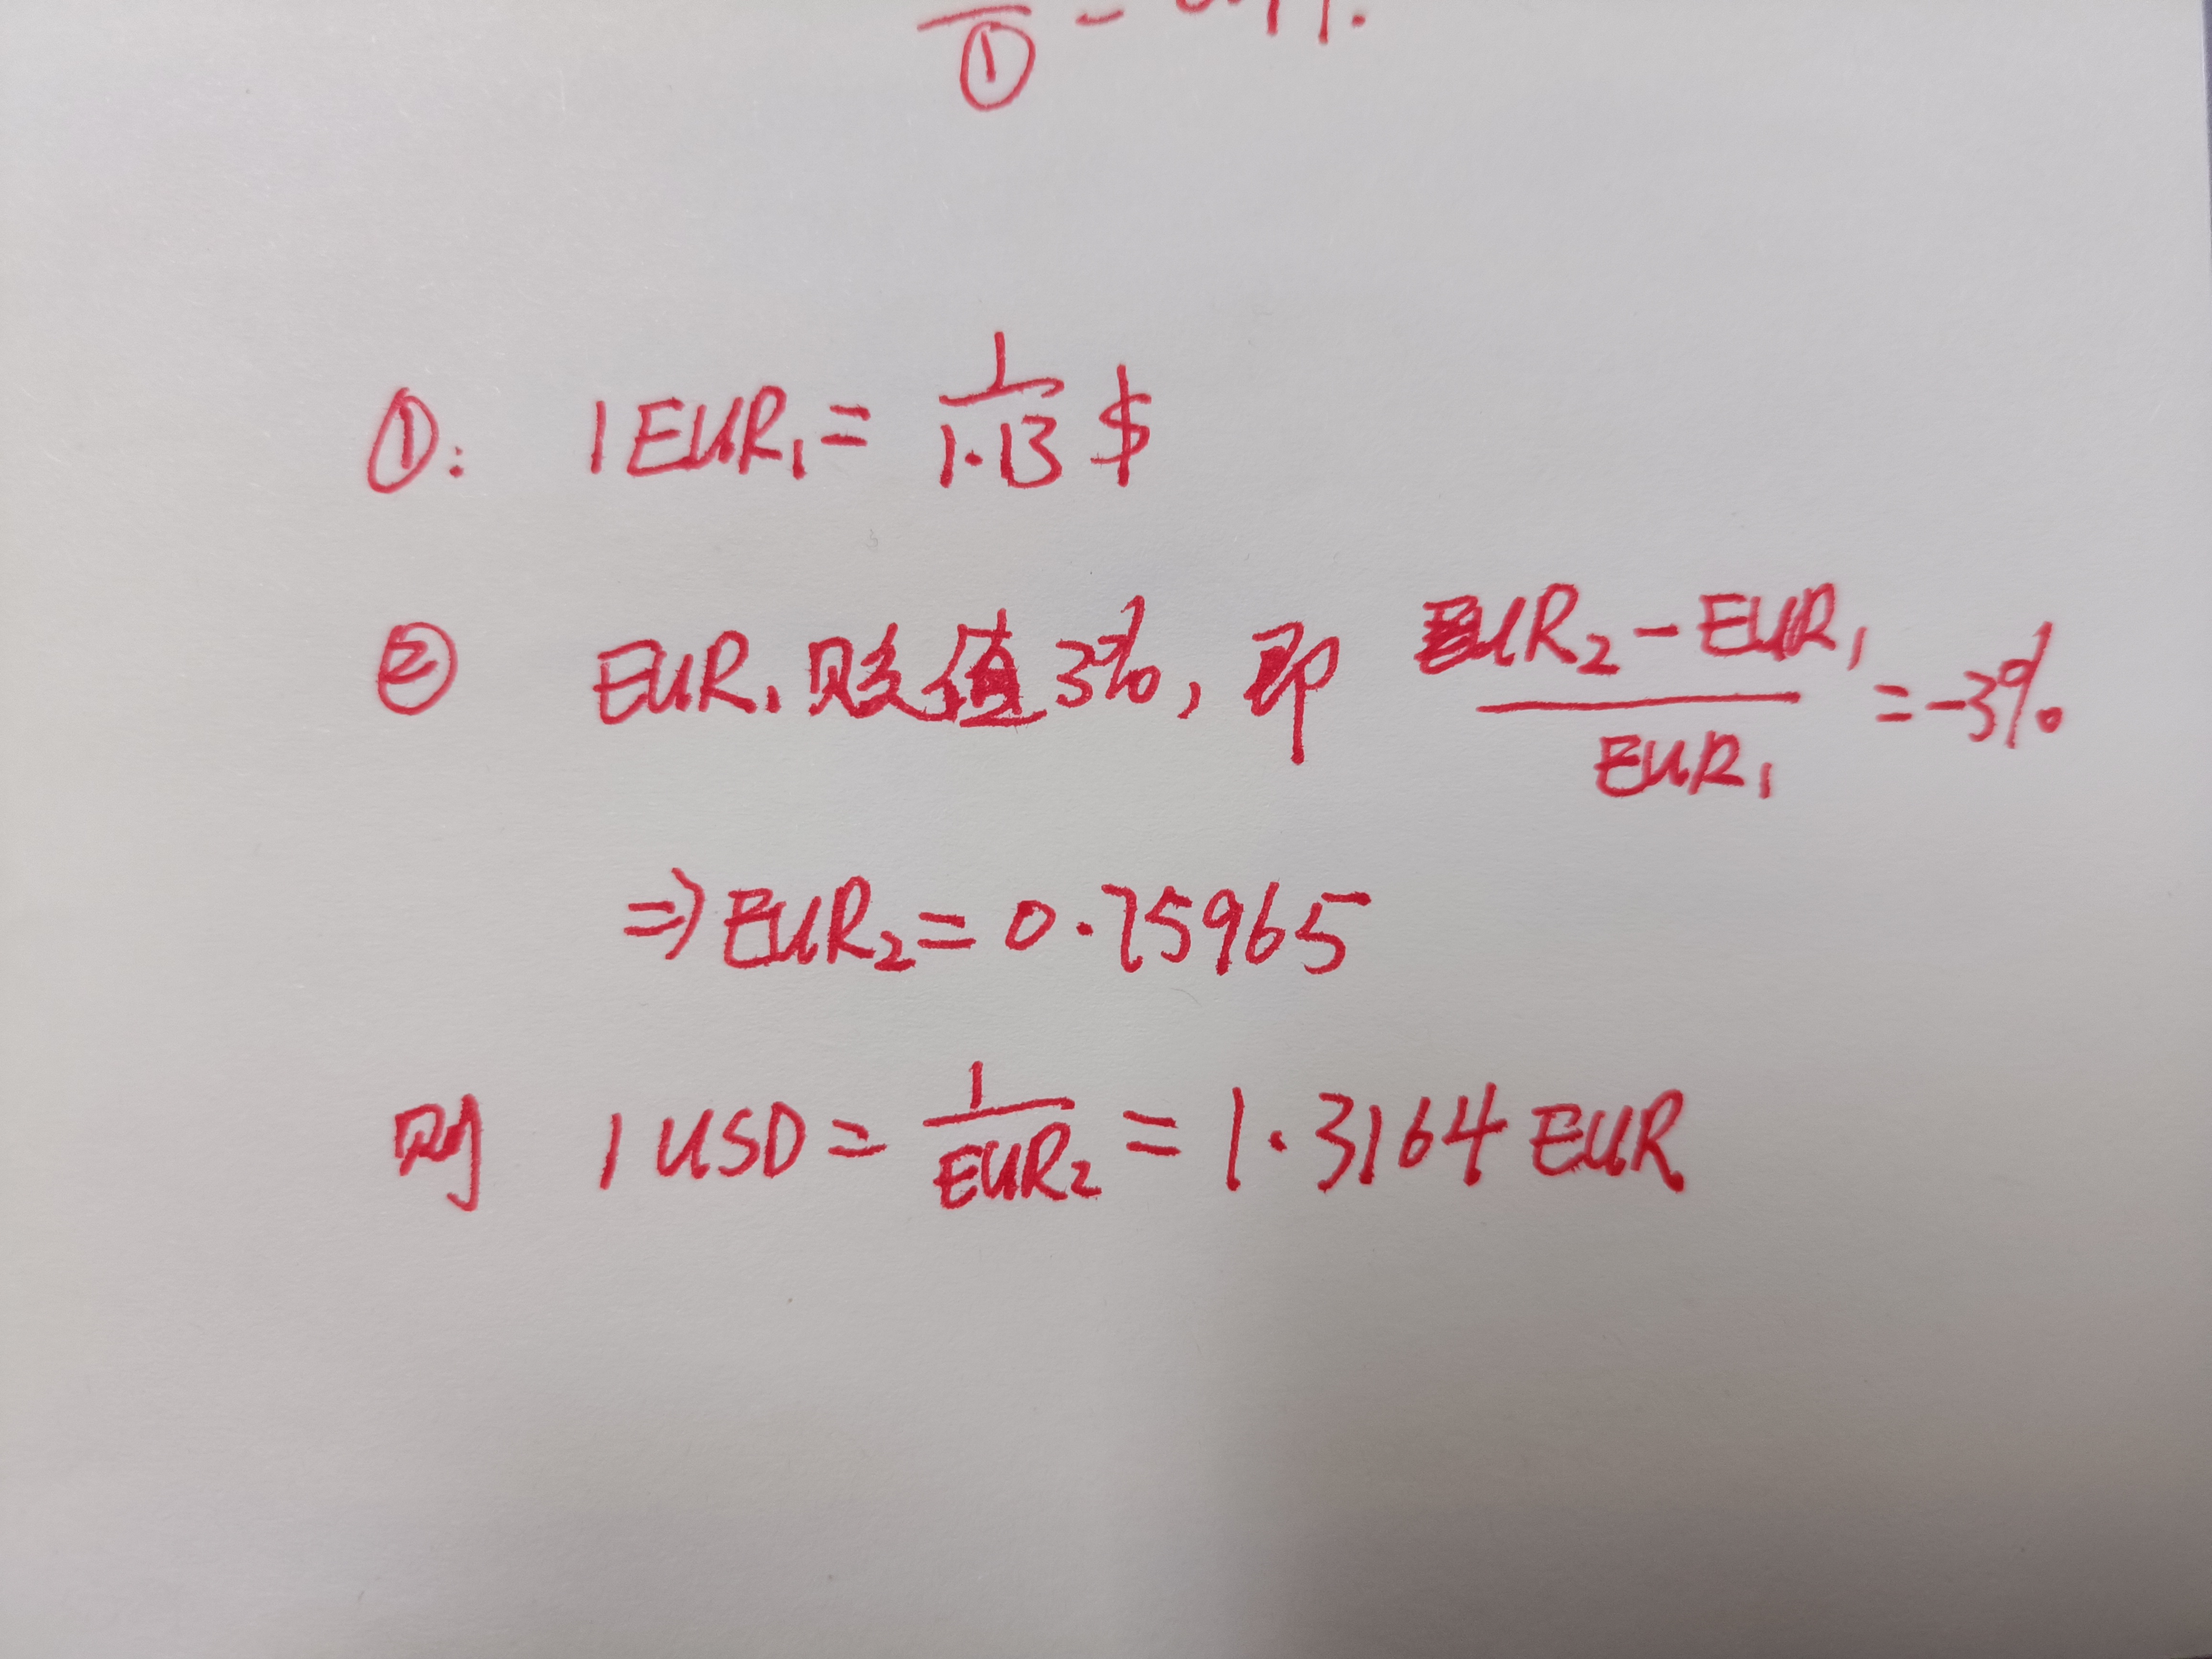 ①
①: 1 EUR₁ = 1/1.13 $
② EUR₁ 贬值 3%, 即 (EUR₂ - EUR₁)/EUR₁ = -3%
⇒ EUR₂ = 0.75965
则 1 USD = 1/EUR₂ = 1.3164 EUR